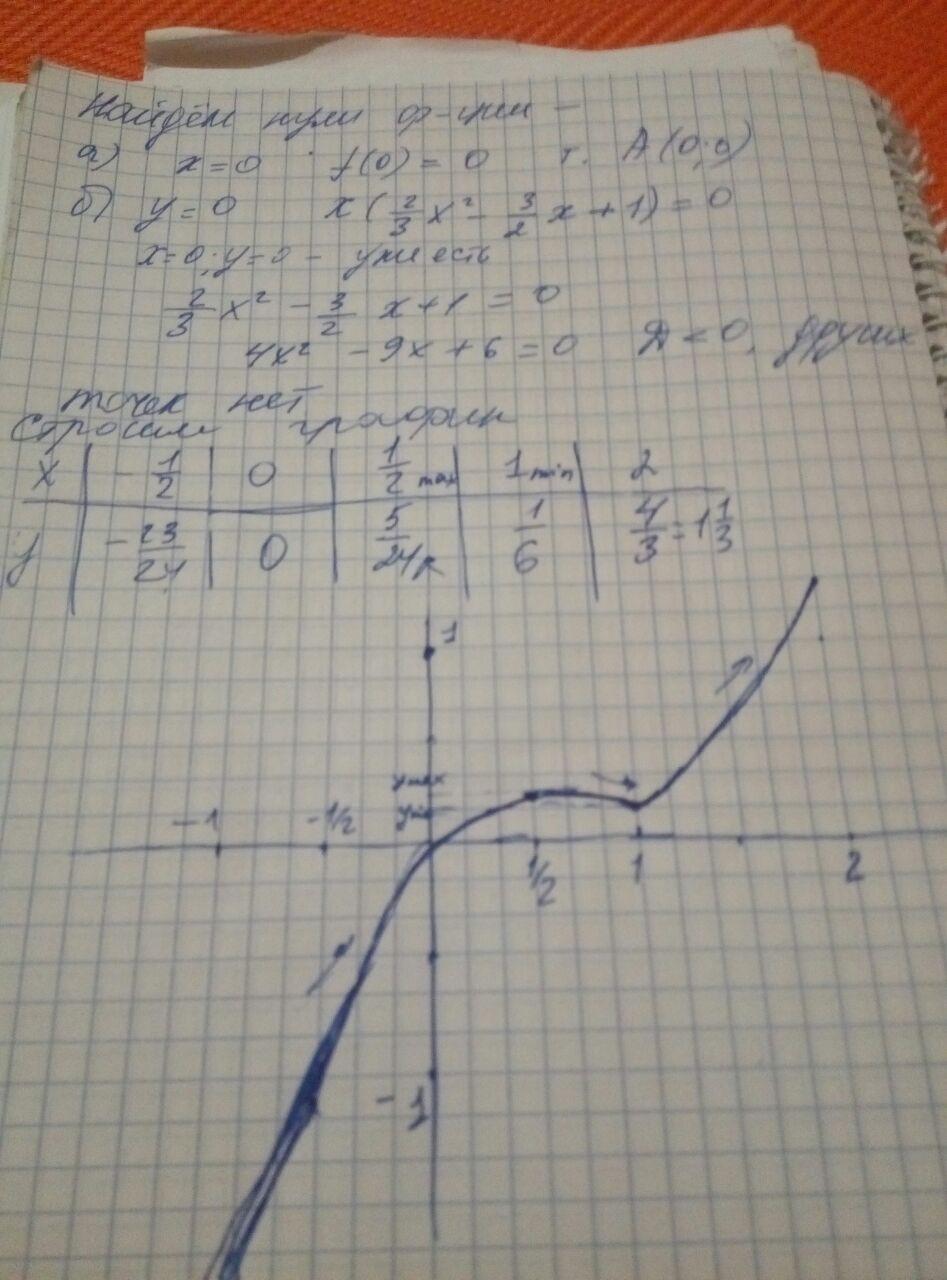 Найдём нули ф-ции –
а) x = 0 f(0) = 0 т. A(0;0)
б) y = 0 x(2/3 x² - 3/2 x + 1) = 0
x=0; y=0 – уже есть
2/3 x² - 3/2 x + 1 = 0
4x² - 9x + 6 = 0 D < 0, других
точек нет
Строим график
x | -1/2 | 0 | 1/2 max | 1 min | 2
y | -23/24 | 0 | 5/24 | 1/6 | 4/3 = 1 1/3
1
y max
y min
-1 -1/2 1/2 1 2
-1